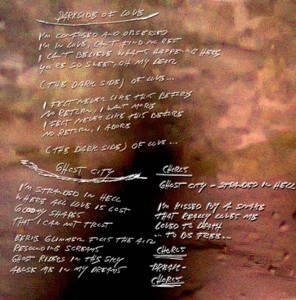 DARKSIDE OF LOVE
I'M CONFUSED AND OBSESSED
I'M IN LOVE, CAN'T FIND NO REST
I CAN'T BELIEVE WHAT'S HAPPENING HERE
YOU'RE SO SWEET, OH MY DEAR
(THE DARK SIDE) OF LOVE...
I FELT NEVER LIKE THIS BEFORE
NO RETURN, I WANT MORE
I FELT NEVER LIKE THIS BEFORE
NO RETURN, I ADORE
(THE DARK SIDE) OF LOVE...
GHOST CITY
I'M STRANDED IN HELL
WHERE ALL LOVE IS LOST
GLOOMY SHAPES
THAT I CAN NOT TRUST
EERIE GLIMMER FILLS THE AIR
RESOUNDING SCREAMS
GHOST RIDERS IN THE SKY
ABUSE ME IN MY DREAMS
CHORUS
GHOST CITY - STRANDED IN HELL
I'M KISSED BY A SNAKE
THAT REALLY LOVES ME
LOVED TO DEATH
... TO BE FREE...
CHORUS
-BREAK-
CHORUS